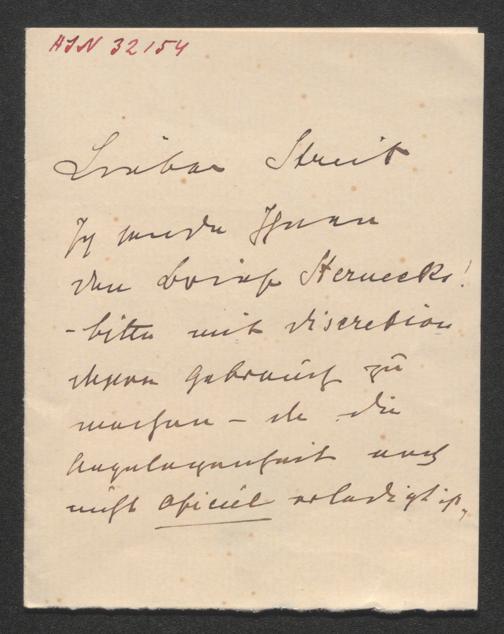 HIN 32154
Lieber Streit
Ich sende Ihnen
den Brief Sternecks!
- bitte mit Discretion
davon Gebrauch zu
machen - da die
Angelegenheit noch
nicht oficiel erledigt ist,